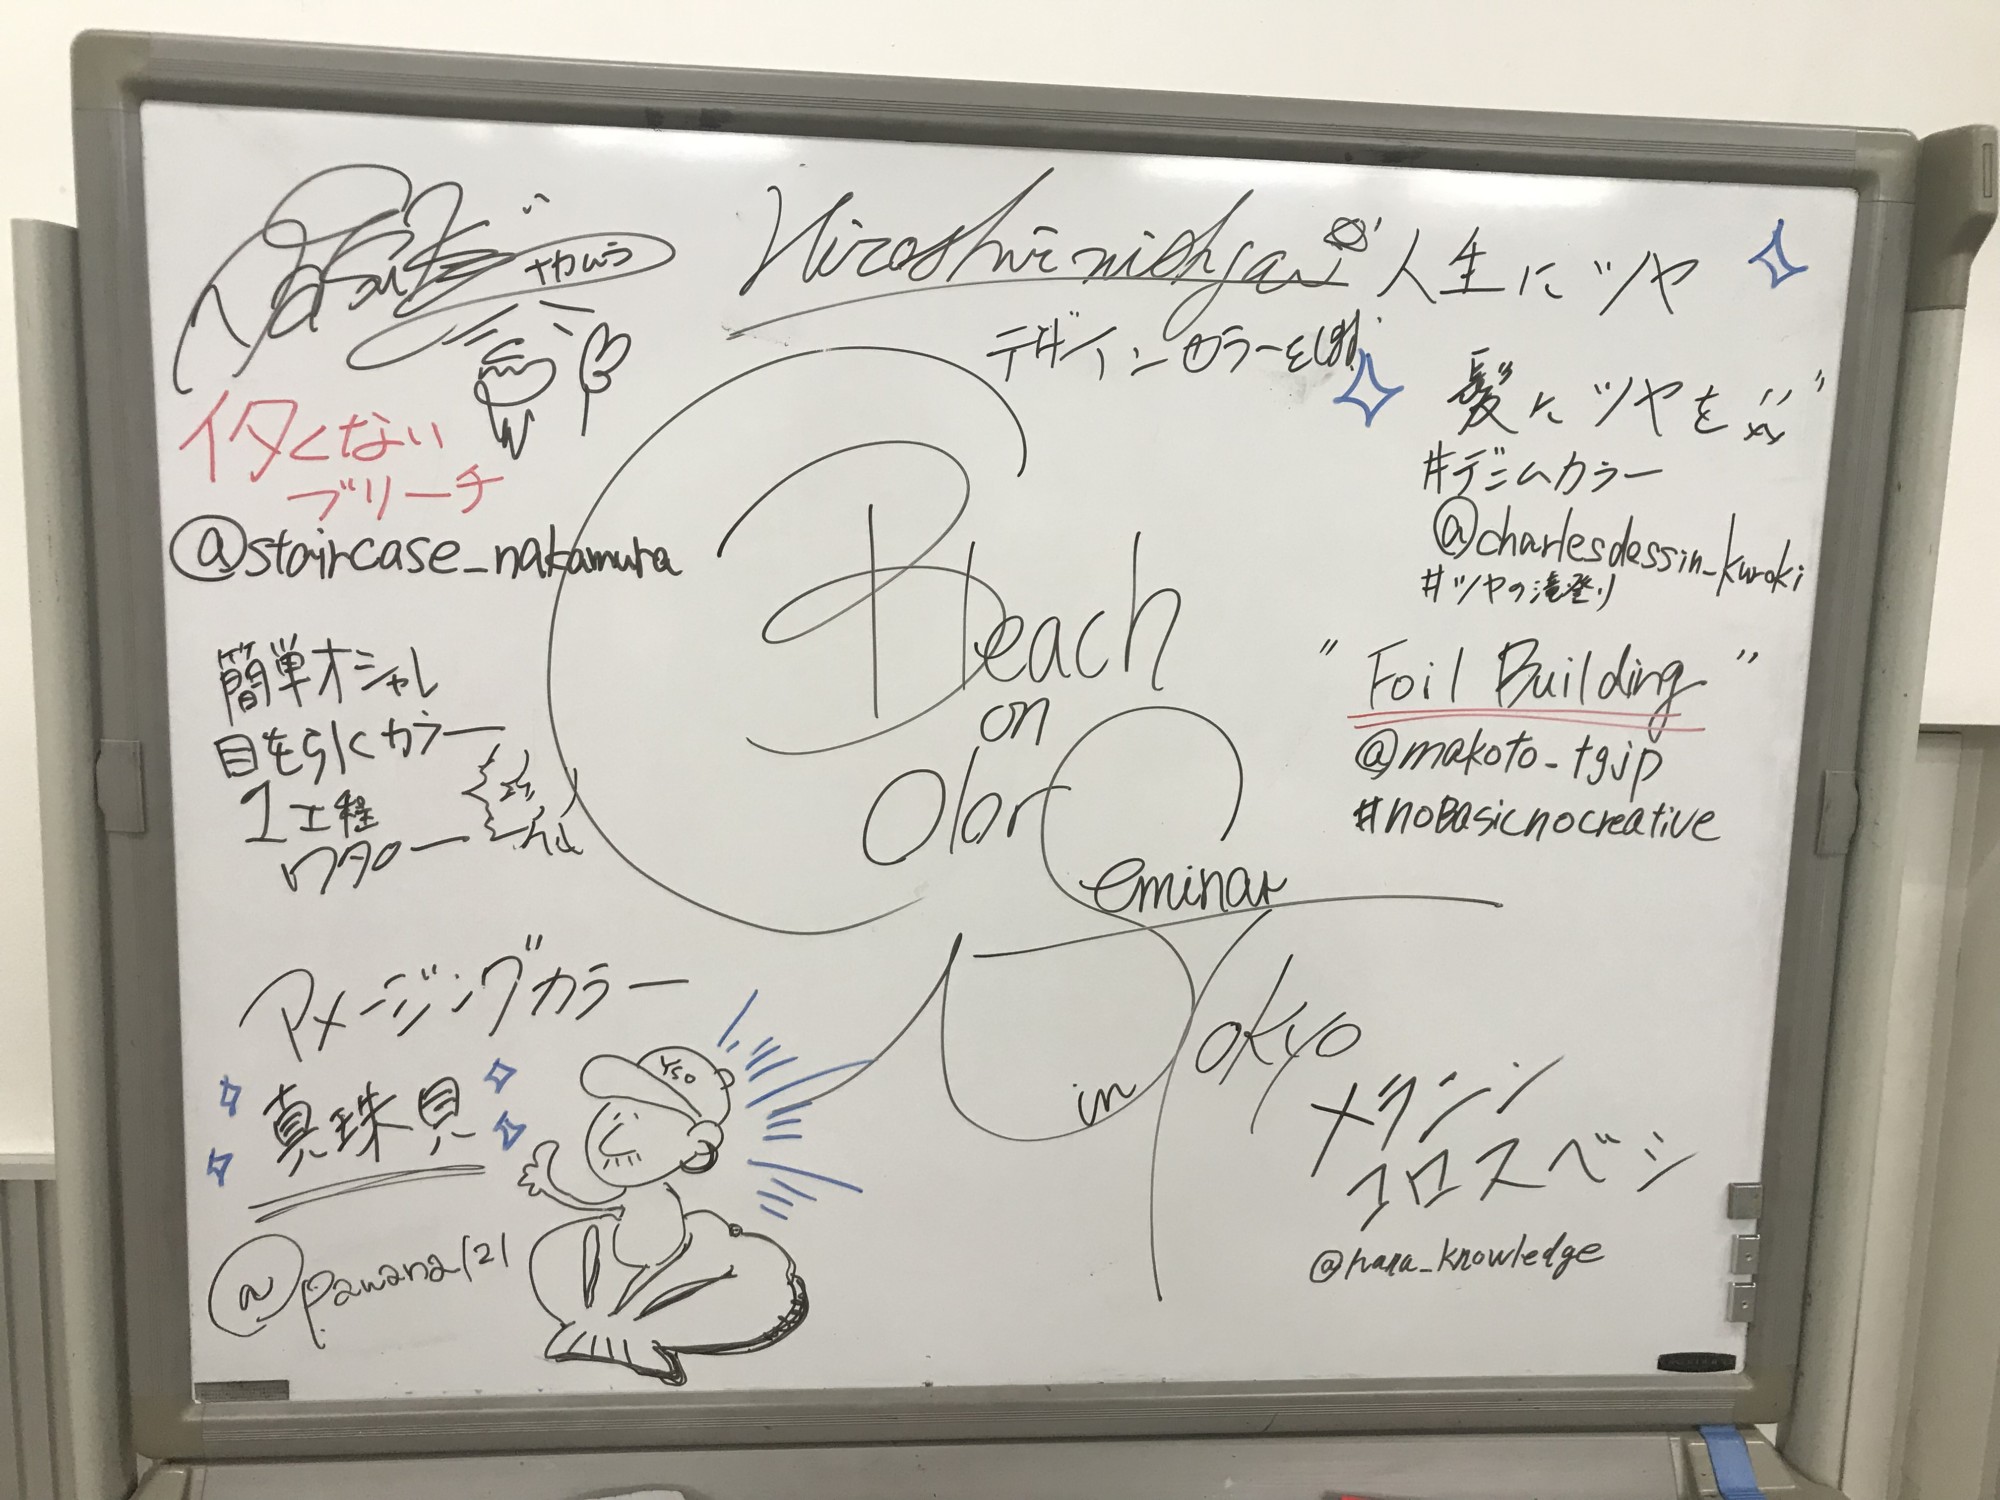 イタくない
ブリーチ
@staircase_nakamura
簡単オシャレ
目を引くカラー
1工程
ワタロー
アメージングカラー
真珠貝
YSO
@pawana121
デザインカラー
Bleach
on
Color
Seminar
in Tokyo
人生にツヤ
髪にツヤを
#デニムカラー
@charlesdessin_kuroki
#ツヤの滝登り
"Foil Building"
@makoto_tgjp
#noBasicnocreative
メランジ
コロスベシ
@hana_knowledge